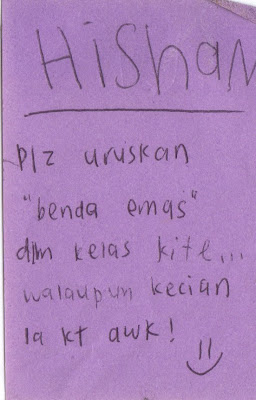 Hishan
plz uruskan
"benda emas"
dlm kelas kite...
walaupun kecian
la kt awk!